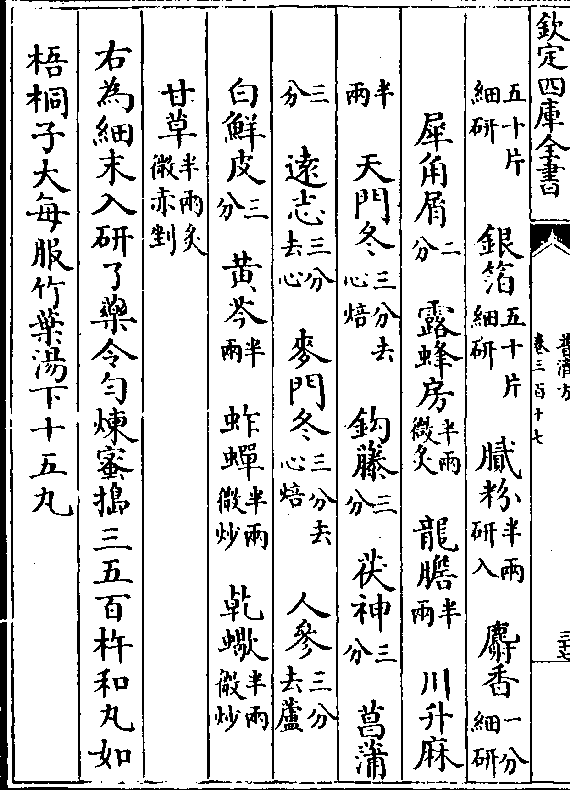 欽定四庫全書
普濟方
卷三百十七
五十片細研 銀箔五十片細研 膩粉半兩研入 麝香一分細研
犀角屑二分 露蜂房半兩微炙 龍膽半兩 川升麻
半兩 天門冬三分去心焙 鈎藤三分 茯神三分 菖蒲
三分 遠志三分去心 麥門冬三分去心焙 人參三分去蘆
白鮮皮三分 黄芩半兩 蚱蟬半兩微炒 乾蠍半兩微炒
甘草半兩炙微赤剉
右為細末入研了藥令勻煉蜜搗三五百杵和丸如
梧桐子大每服竹葉湯下十五丸